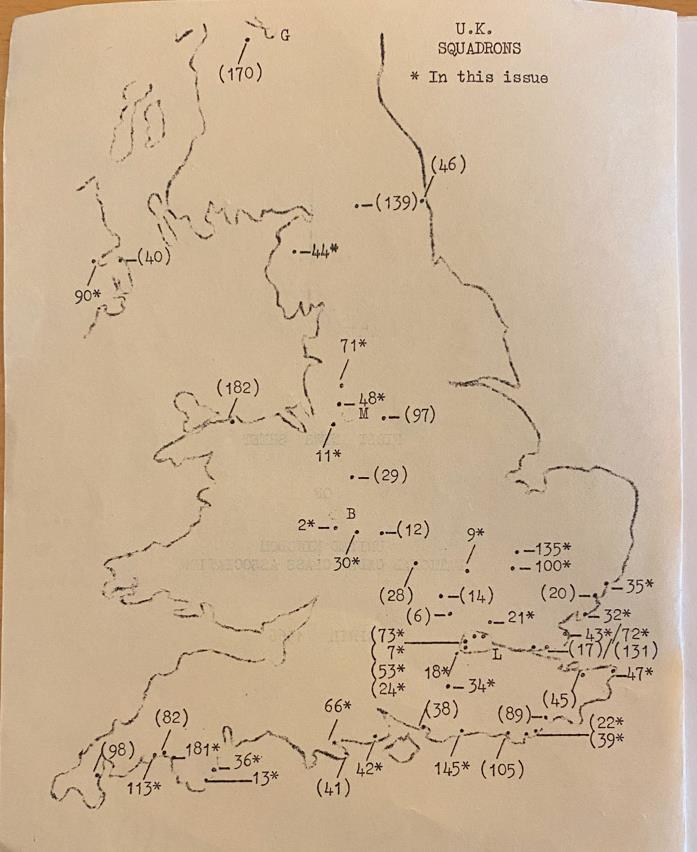 U.K.
SQUADRONS
* In this issue
G
(170)
(46)
(139)
44*
(40)
90*
71*
(182)
48*
M
(97)
11*
(29)
B
2*
(12)
30*
9*
135*
100*
(28)
(14)
(20)
35*
(6)
21*
32*
(73*
43*/72*
7*
(17)/(131)
L
(53*
18*
47*
(24*
34*
(45)
66*
(38)
(89)
(22*
(82)
(39*
(98)
181*
36*
42*
145*
(105)
113*
13*
(41)